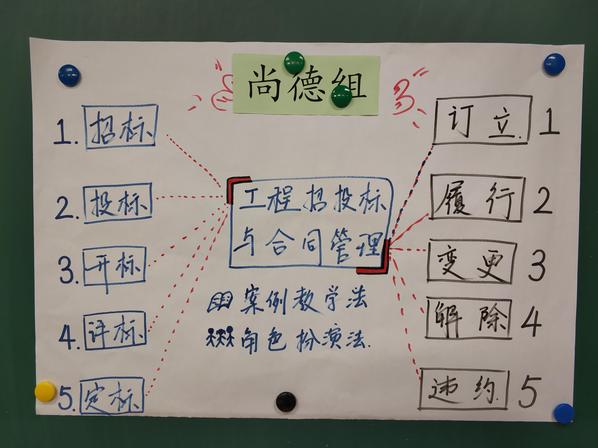 尚德组
1. 招标
2. 投标
3. 开标
4. 评标
5. 定标
工程招投标
与合同管理
案例教学法
角色扮演法
订立 1
履行 2
变更 3
解除 4
违约 5